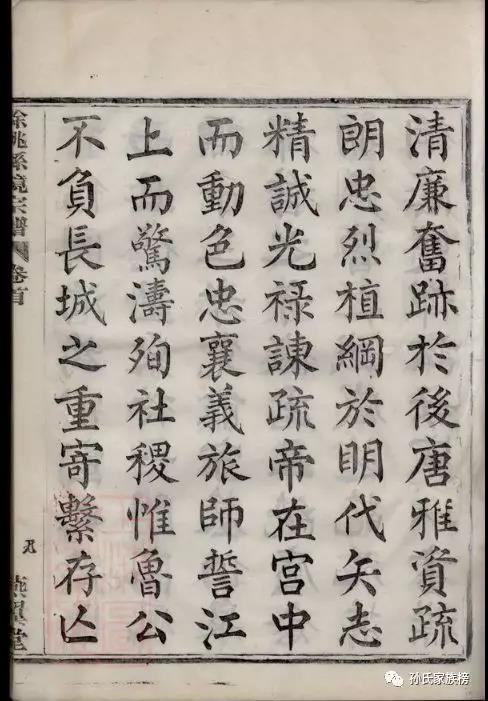 清廉奮跡於後唐雅資疏
朗忠烈植綱於眀代矢志
精誠光祿諫疏帝在宫中
而動色忠襄義旅師誓江
上而驚濤殉社稷惟魯公
不負長城之重寄繫存亾
餘姚孫境宗譜
卷首
九
燕翼堂
孙氏家族榜